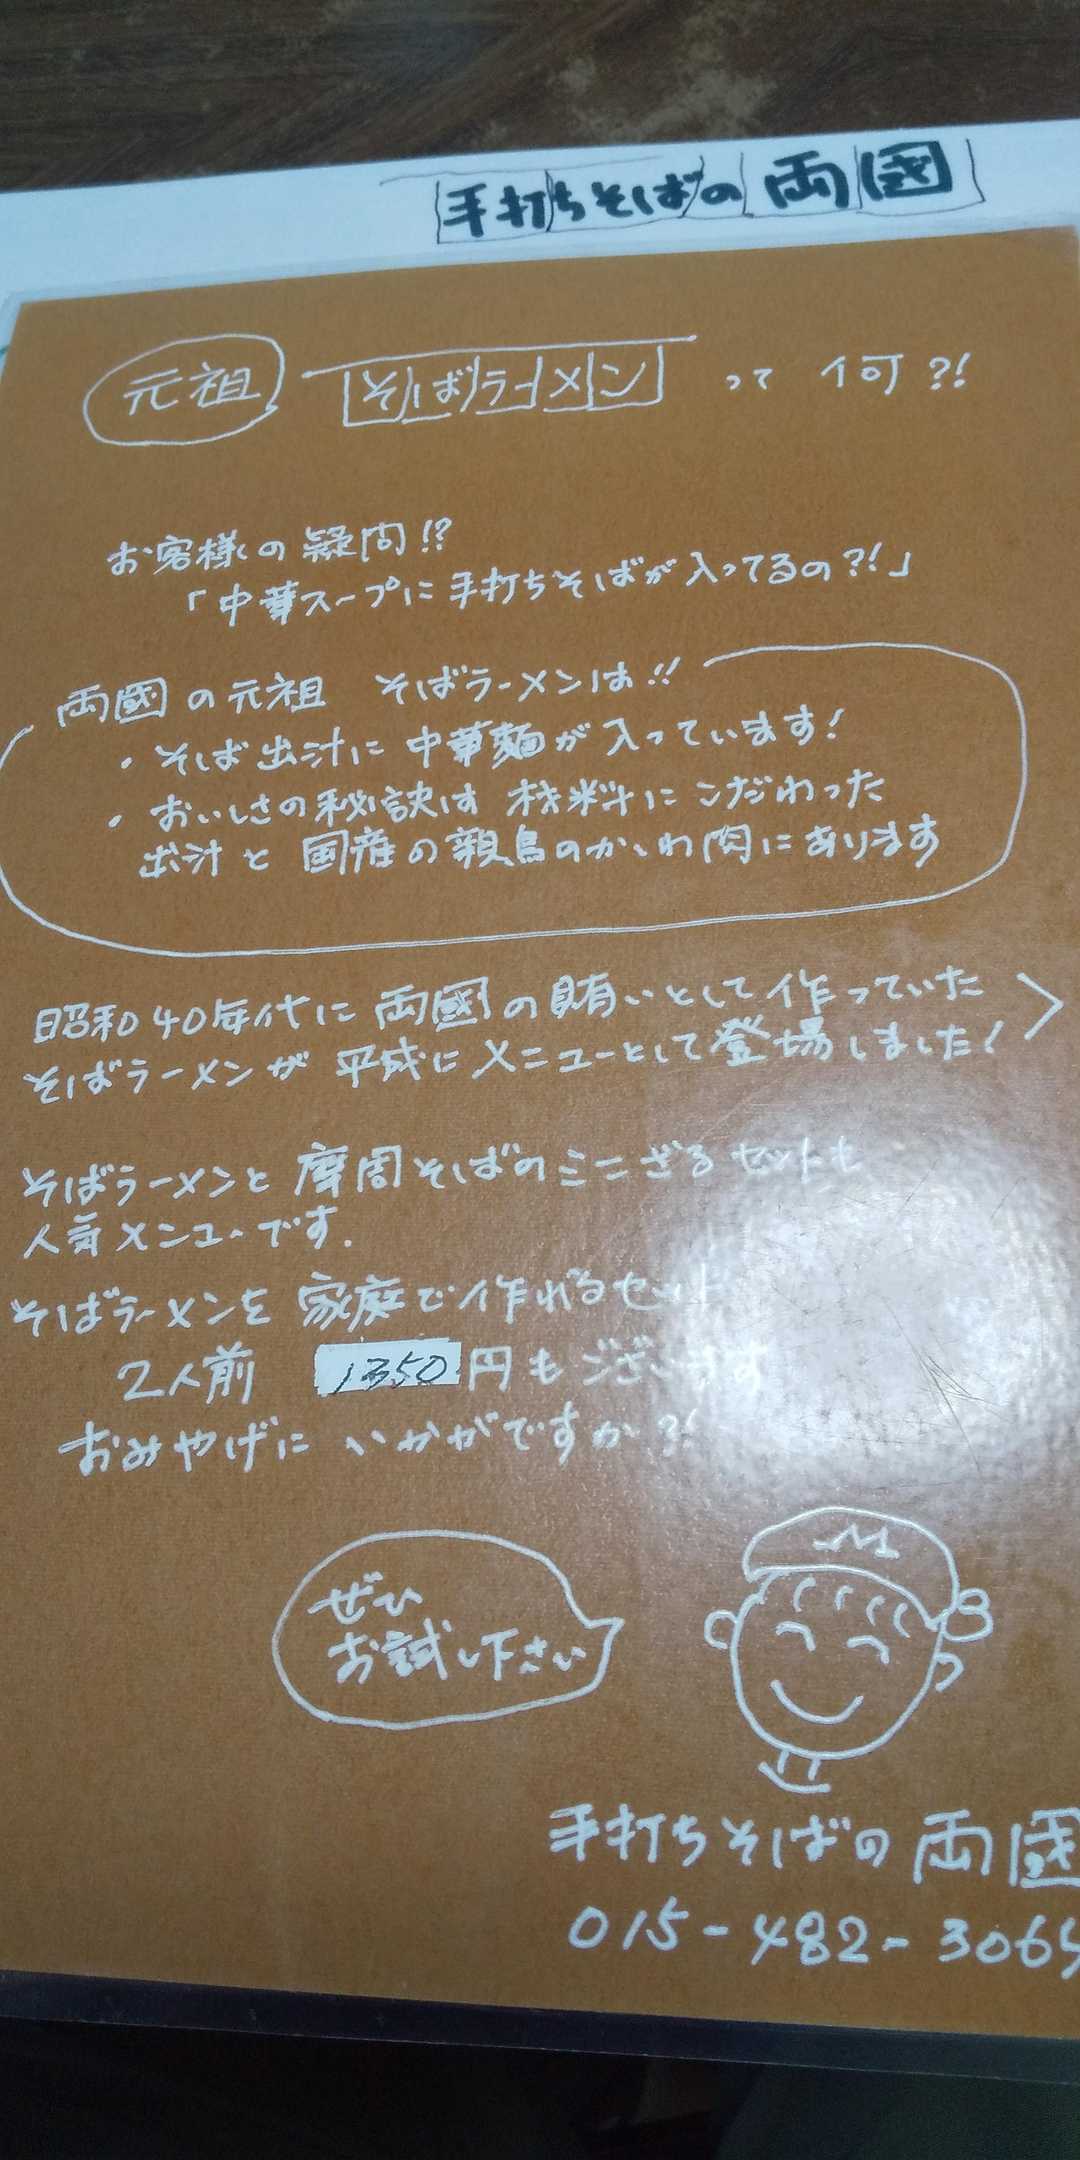 手打ちそばの両國
元祖 そばラーメン って何?!
お客様の疑問!?
「中華スープに手打ちそばが入ってるの?!」
両國の元祖 そばラーメンは!!
・そば出汁に中華麺が入っています!
・おいしさの秘訣は材料にこだわった
出汁と国産の親鳥のかしわ肉にあります
昭和40年代に両國の賄いとして作っていた
そばラーメンが平成にメニューとして登場しました!
そばラーメンと摩周そばのミニざるセットも
人気メニューです.
そばラーメンを家庭で作れるセット
2人前 1350円もございます
おみやげにいかがですか?!
ぜひ
お試し下さい
M
手打ちそばの両國
015-482-3064